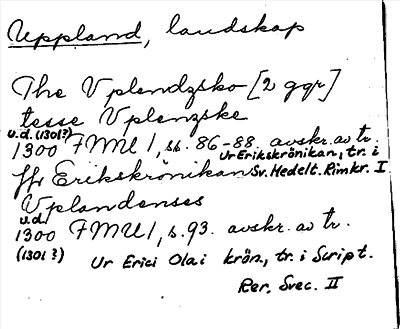 Uppland, landskap
The Vplendzsko [2 ggr]
tesse Vplenzske
u.d. (1301?)
1300 FMU 1, ss. 86-88 avskr. av tr.
Ur Erikskrönikan, tr. i
ffr Erikskrönikan Sv. Medelt. Rimkr. I
Vplandenses
u.d.
1300 FMU 1, s. 93. avskr. av tr.
(1301?) Ur Erici Olai krön., tr. i Script.
Rer. Svec. II